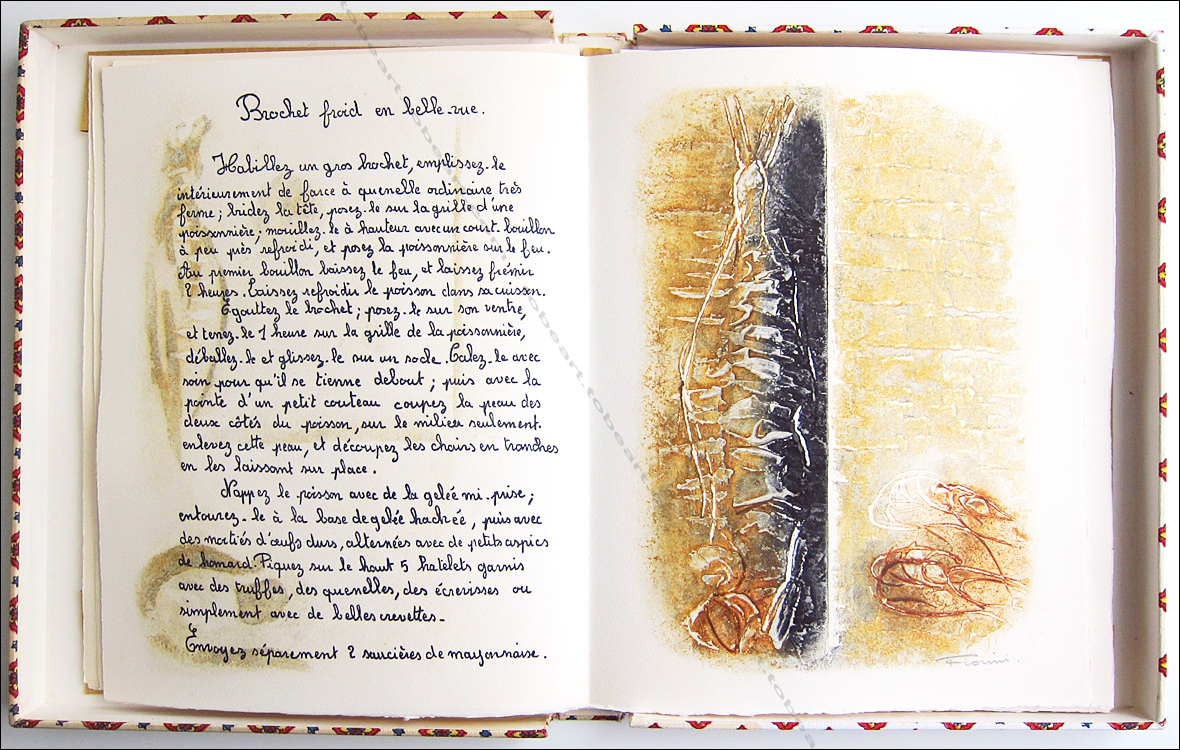 Brochet froid en belle-vue.
Habillez un gros brochet, emplissez-le
intérieurement de farce à quenelle ordinaire très
ferme ; bridez la tête, posez-le sur la grille d'une
poissonnière ; mouillez-le à hauteur avec un court-bouillon
à peu près refroidi, et posez la poissonnière sur le feu.
Au premier bouillon baissez le feu, et laissez frémir
2 heures. Laissez refroidir le poisson dans sa cuisson.
Egouttez le brochet ; posez-le sur son ventre,
et tenez-le 1 heure sur la grille de la poissonnière,
déballez-le et glissez-le sur un socle. Calez-le avec
soin pour qu'il se tienne debout ; puis avec la
pointe d'un petit couteau coupez la peau des
deux côtés du poisson, sur le milieu seulement.
enlevez cette peau, et découpez les chairs en tranches
en les laissant sur place.
Nappez le poisson avec de la gelée mi-prise ;
entourez-le à la base de gelée hachée, puis avec
des moitiés d'œufs durs, alternées avec de petits aspics
de homard. Piquez sur le haut 5 hatelets garnis
avec des truffes, des quenelles, des écrevisses ou
simplement avec de belles crevettes.
Envoyez séparement 2 saucières de mayonnaise.
Fiorini
tobeart.tobeart.tobeart.tobeart.tobeart.tobeart.tobea